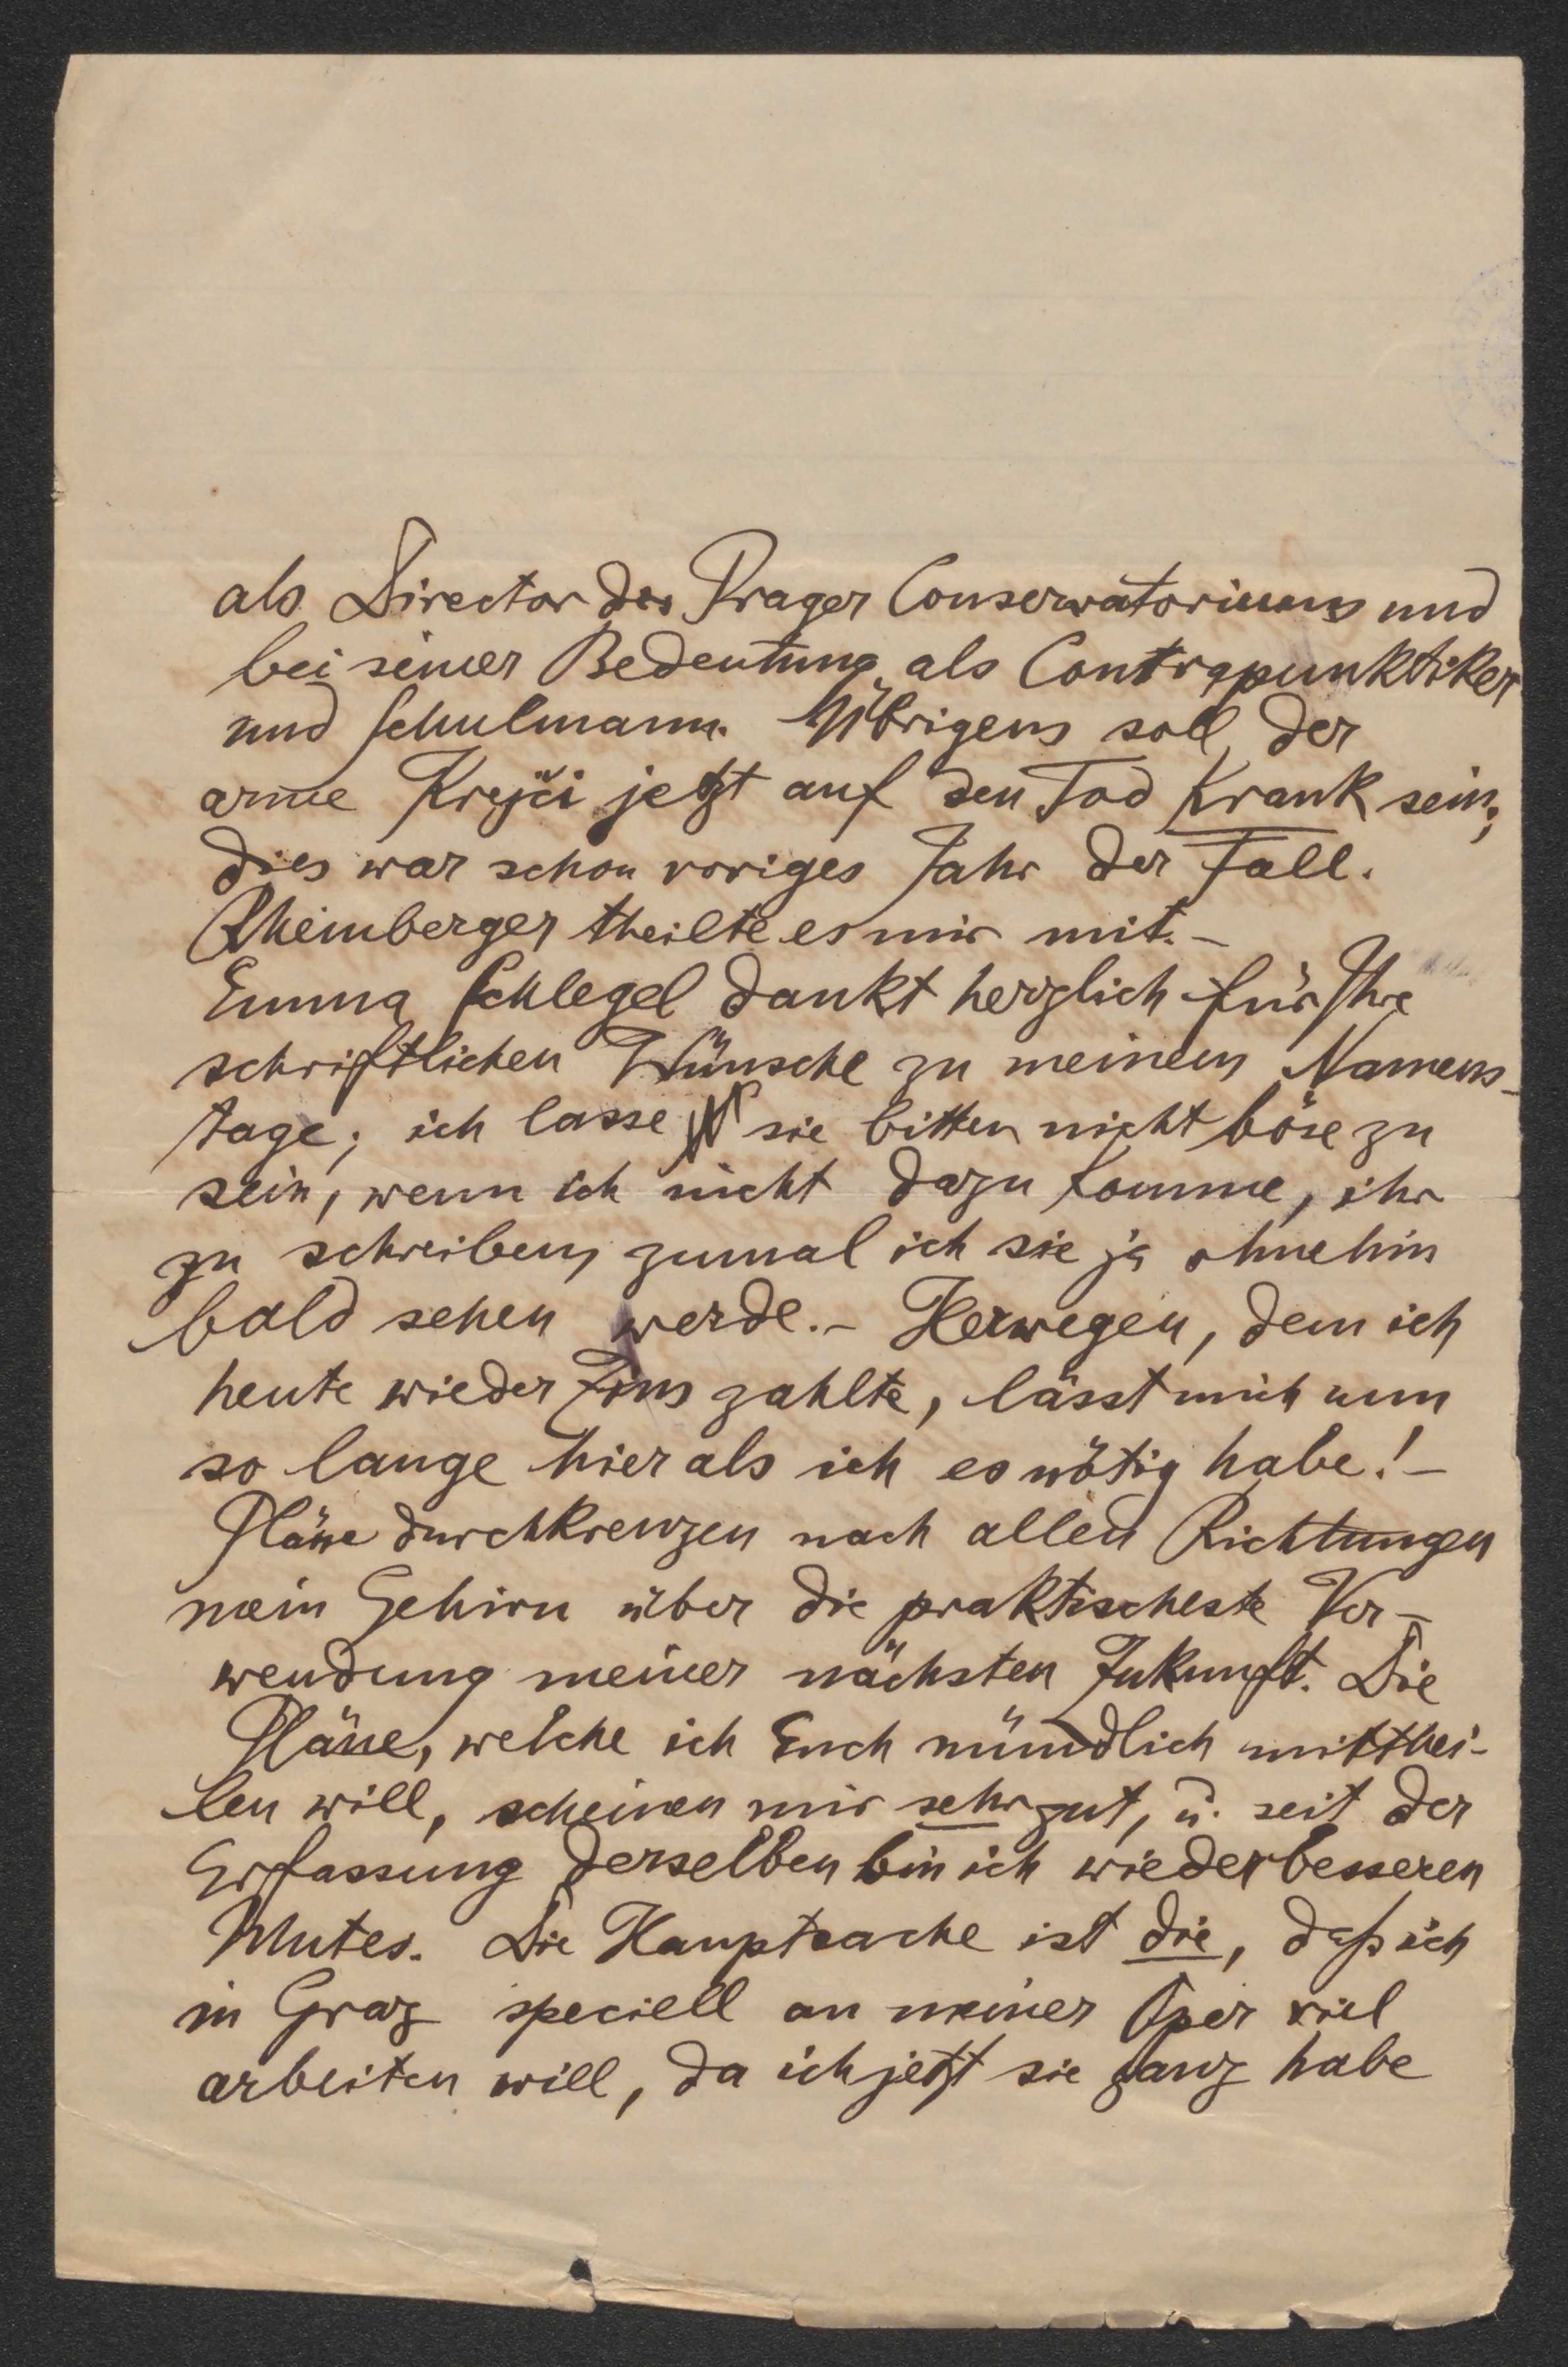 als Director des Prager Conservatoriums und
bei seiner Bedeutung als Contrapunktiker
und Schulmann. Übrigens soll der
arme Krejči jetzt auf den Tod krank sein;
dies war schon voriges Jahr der Fall.
Rheinberger theilte es mir mit. –
Emma Schlegel dankt herzlich für Ihre
schriftlichen Wünsche zu meinem Namens-
tage; ich lasse sie bitten nicht böse zu
sein, wenn ich nicht dazu komme, ihr
zu schreiben, zumal ich sie ja ohnehin
bald sehen werde. – Herwegen, dem ich
heute wieder Zins zahlte, lässt mich nun
so lange hier als ich es nötig habe! –
Pläne durchkreuzen nach allen Richtungen
mein Gehirn über die praktischeste Ver-
wendung meiner nächsten Zukunft. Die
Pläne, welche ich Euch mündlich mitthei-
len will, scheinen mir sehr gut, u. seit der
Erfassung derselben bin ich wieder besseren
Mutes. Die Hauptsache ist die, daß ich
in Graz speciell an meiner Oper viel
arbeiten will, da ich jetzt sie ganz habe